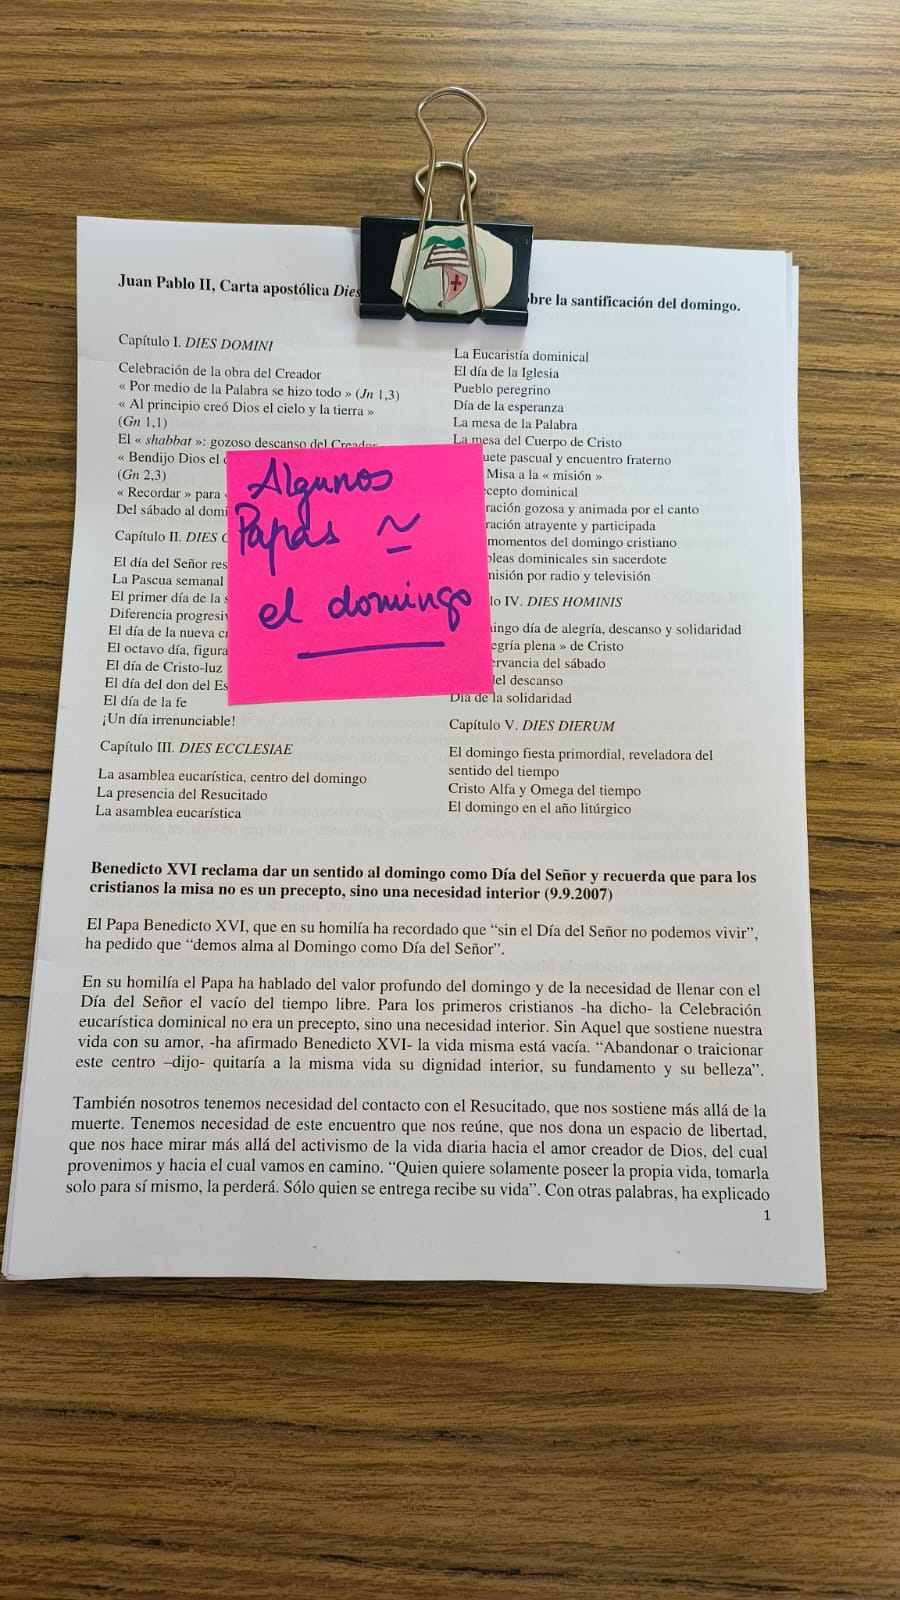 Juan Pablo II, Carta apostólica Dies
bre la santificación del domingo.
Capítulo I. DIES DOMINI
Celebración de la obra del Creador
« Por medio de la Palabra se hizo todo » (Jn 1,3)
« Al principio creó Dios el cielo y la tierra »
(Gn 1,1)
El « shabbat »: gozoso descanso del Creador
« Bendijo Dios el
(Gn 2,3)
« Recordar » para
Del sábado al domi
Capítulo II. DIES C
El día del Señor res
La Pascua semanal
El primer día de la s
Diferencia progresiv
El día de la nueva cr
El octavo día, figura
El día de Cristo-luz
El día del don del Es
El día de la fe
¡Un día irrenunciable!
Capítulo III. DIES ECCLESIAE
La asamblea eucarística, centro del domingo
La presencia del Resucitado
La asamblea eucarística
La Eucaristía dominical
El día de la Iglesia
Pueblo peregrino
Día de la esperanza
La mesa de la Palabra
La mesa del Cuerpo de Cristo
uete pascual y encuentro fraterno
Misa a la « misión »
cepto dominical
ración gozosa y animada por el canto
ración atrayente y participada
momentos del domingo cristiano
bleas dominicales sin sacerdote
misión por radio y televisión
lo IV. DIES HOMINIS
ingo día de alegría, descanso y solidaridad
egría plena » de Cristo
ervancia del sábado
del descanso
Día de la solidaridad
Capítulo V. DIES DIERUM
El domingo fiesta primordial, reveladora del
sentido del tiempo
Cristo Alfa y Omega del tiempo
El domingo en el año litúrgico
Algunos
Papas ~
el domingo
Benedicto XVI reclama dar un sentido al domingo como Día del Señor y recuerda que para los
cristianos la misa no es un precepto, sino una necesidad interior (9.9.2007)
El Papa Benedicto XVI, que en su homilía ha recordado que “sin el Día del Señor no podemos vivir”,
ha pedido que “demos alma al Domingo como Día del Señor”.
En su homilía el Papa ha hablado del valor profundo del domingo y de la necesidad de llenar con el
Día del Señor el vacío del tiempo libre. Para los primeros cristianos -ha dicho- la Celebración
eucarística dominical no era un precepto, sino una necesidad interior. Sin Aquel que sostiene nuestra
vida con su amor, -ha afirmado Benedicto XVI- la vida misma está vacía. “Abandonar o traicionar
este centro –dijo- quitaría a la misma vida su dignidad interior, su fundamento y su belleza”.
También nosotros tenemos necesidad del contacto con el Resucitado, que nos sostiene más allá de la
muerte. Tenemos necesidad de este encuentro que nos reúne, que nos dona un espacio de libertad,
que nos hace mirar más allá del activismo de la vida diaria hacia el amor creador de Dios, del cual
provenimos y hacia el cual vamos en camino. “Quien quiere solamente poseer la propia vida, tomarla
solo para sí mismo, la perderá. Sólo quien se entrega recibe su vida”. Con otras palabras, ha explicado
1